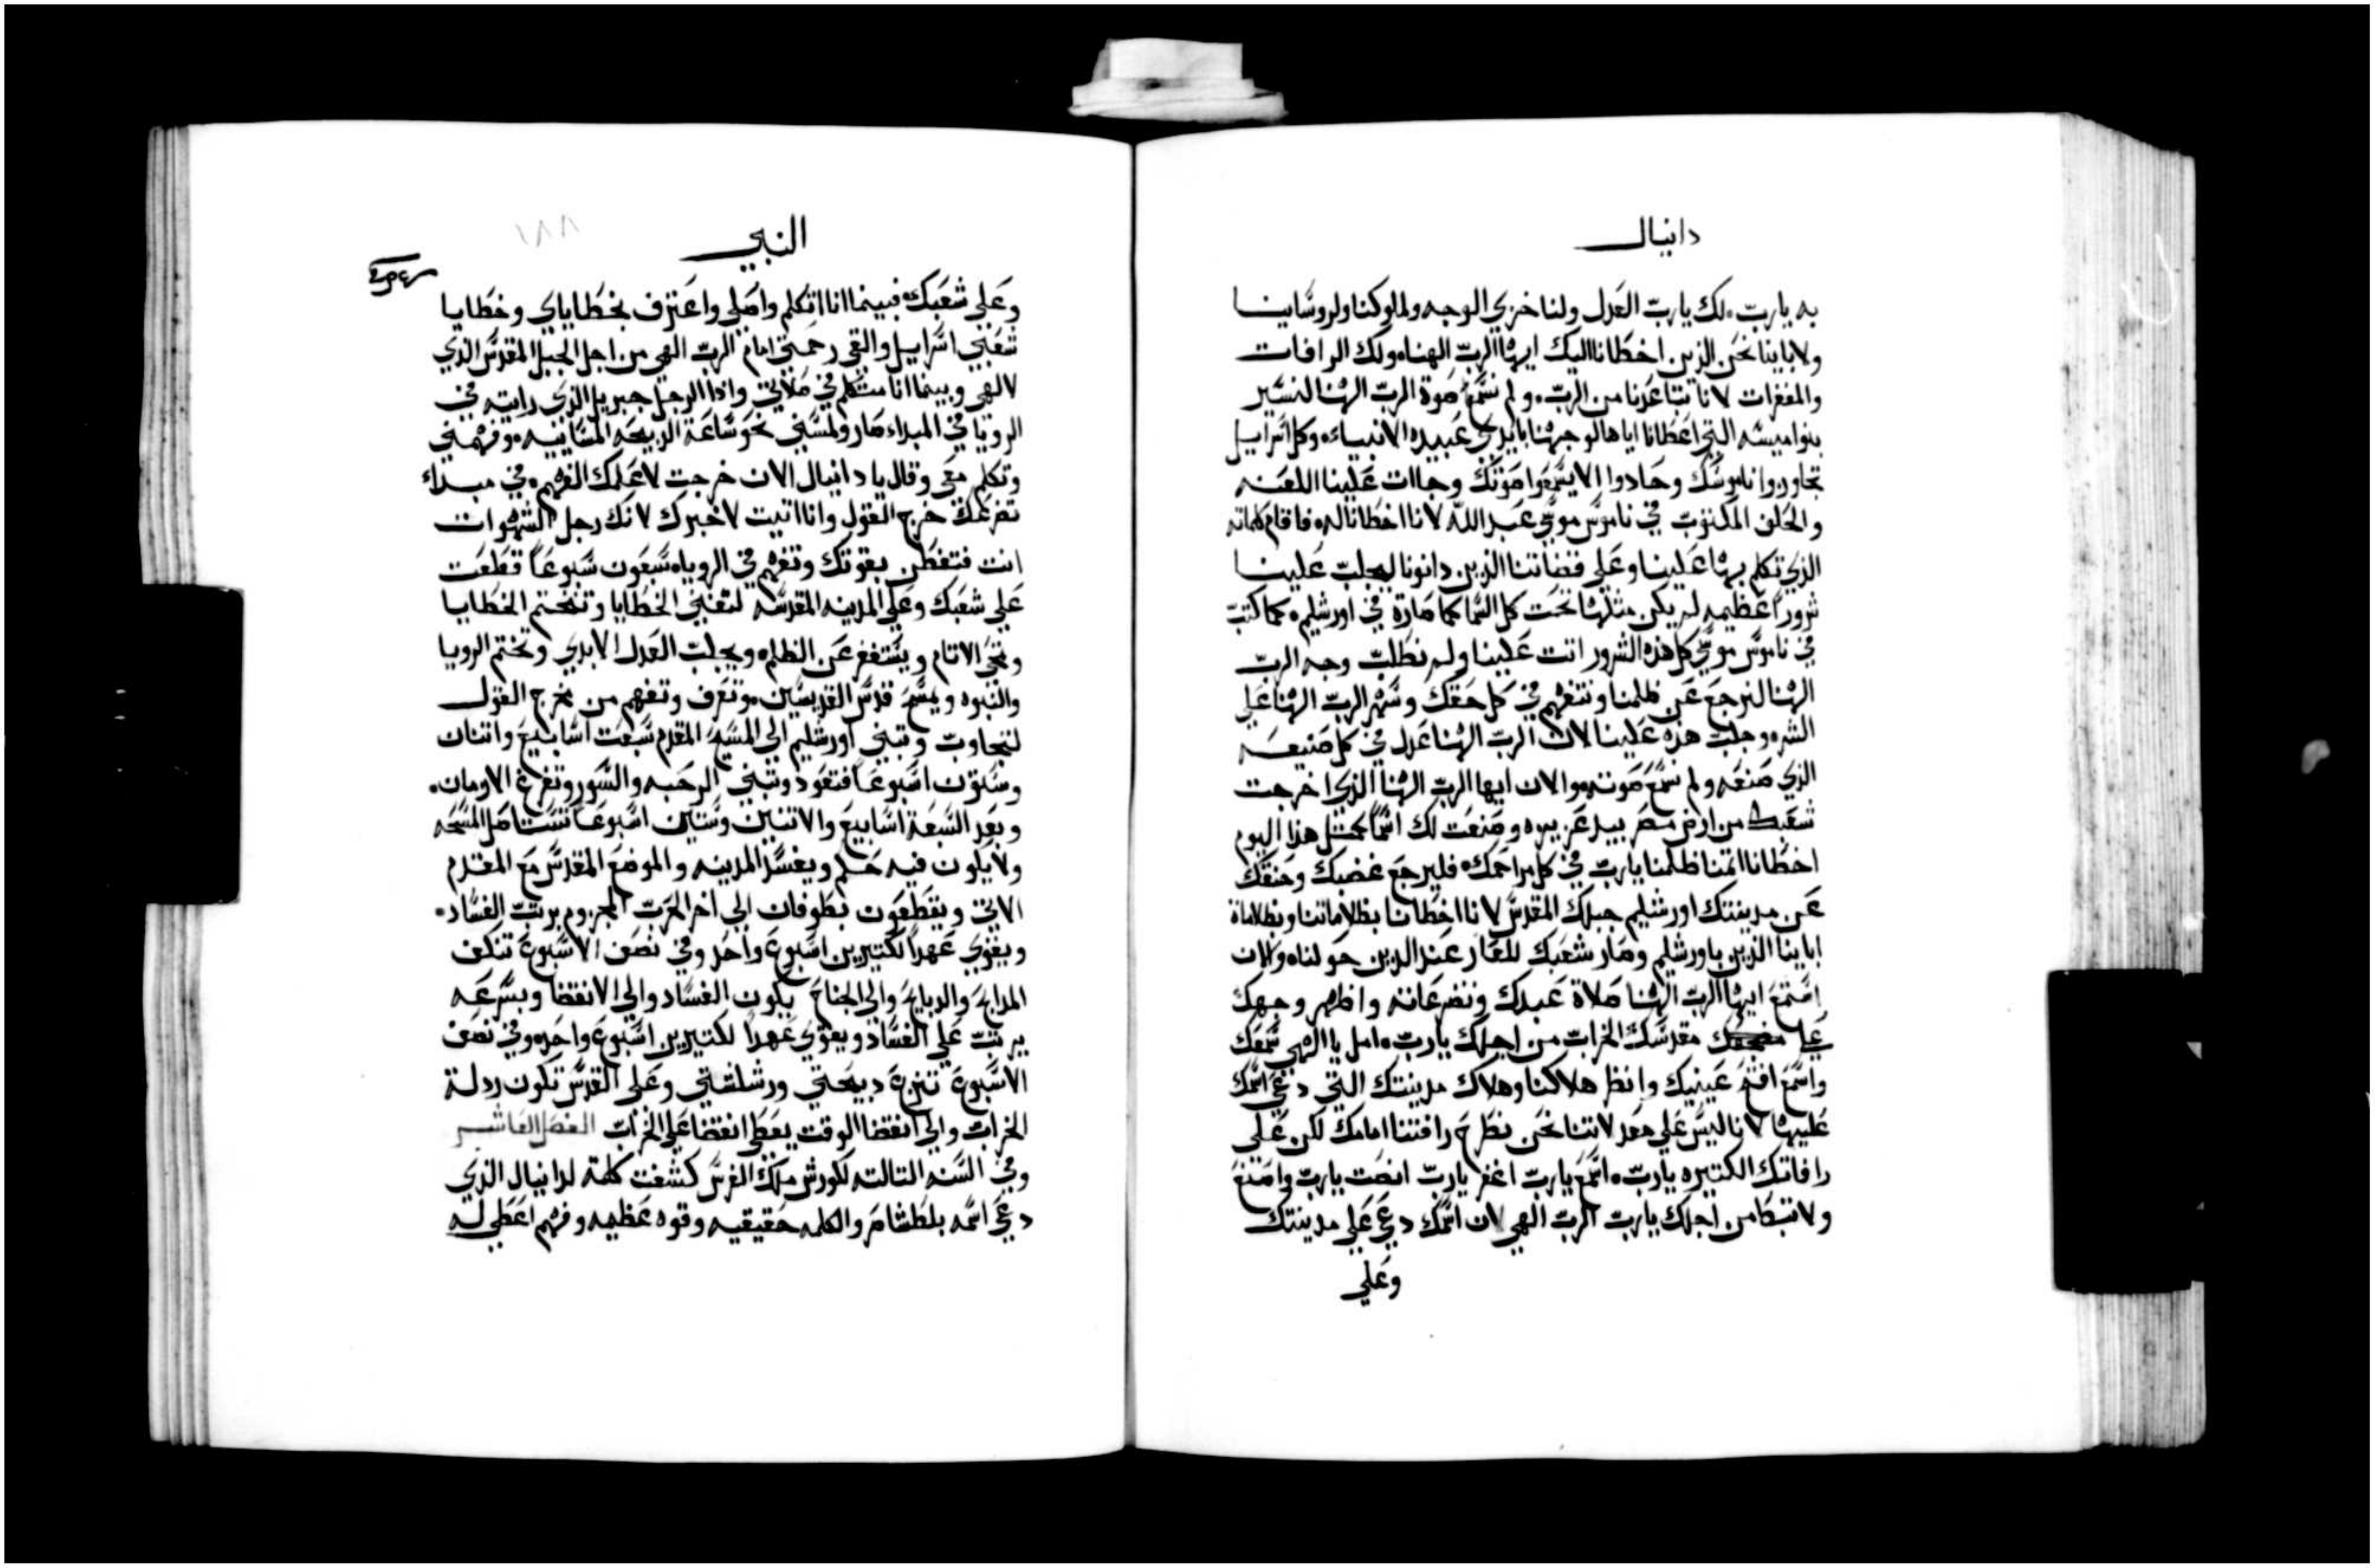 دانيال
به يارب. لك يارب العدل ولنا خزي الوجه ولملوكنا ولروسانا
ولاباينا نحن الذين اخطانا اليك ايها الرب الهنا. ولك الرافات
والمغفرات لانا تباعدنا من الرب. ولم نسمع صوة الرب الهنا لنسير
بنواميسه التي اعطانا اياها لوجهنا بايدي عبيده الانبياء. وكل اسراييل
تجاوروا ناموسك وحادوا الا يسمعوا صوتك وجاات علينا اللعنه
والحلف المكتوب في ناموس موسي عبد الله لانا اخطانا له. فاقام كلماته
الذي تكلم بها علينا وعلي قضاتنا الذين دانونا ليجلب علينا
شروراً عظيمه لم يكن مثلها تحت كل السما كما صارة في اورشليم. كما كتب
في ناموس موسي كل هذه الشرور اتت علينا ولم نطلب وجه الرب
الهنا لنرجع عن ظلمنا ونتفهم في كل حقك وسهر الرب الهنا علي
الشر. وجلب هذه علينا لان الرب الهنا عدل في كل صنيعه
الذي صنعه ولم نسمع صوته. والان ايها الرب الهنا الذي اخرجت
شعبك من ارض مصر بيد عزيزه وصنعت لك اسماً كمثل هذا اليوم
اخطانا اثمنا ظلمنا يارب في كل مراحمك. فليرجع غضبك وحنقك
عن مدينتك اورشليم جبلك المقدس لانا اخطانا بظلاماتنا وبظلاماة
اباينا الذين باورشليم وصار شعبك للعار عند الدين حولنا. والان
استمع ايها الرب الهنا صلاة عبدك وتضرعاته واظهر وجهك
علي مقدسك الخراب من اجلك يارب. امل يا الهي سمعك
واسمع افتح عينيك وانظر هلاكنا وهلاك مدينتك التي دعي اسمك
عليها لانا ليس علي عدلاتنا نحن نطرح رافتنا امامك لكن علي
رافاتك الكتيره يارب. اسمع يارب اغفر يارب انصت يارب واصنع
ولا تبطا من اجلك يارب الرب الهي لان اسمك دعي علي مدينتك
وعلي
النبي
١٨٨
وعلي شعبك. فبينما انا اتكلم واصلي واعترف بخطاياي وخطايا
شعبي اسراييل والقي رحمتي امام الرب الهي من اجل الجبل المقدس الذي
لالهي وبينما انا متكلم في صلاتي واذا الرجل جبريل الذي رايته في
الرويا في المبداء صار ولمسني نحو ساعة الدبيحه المساييه. وفهمني
وتكلم معي وقال يا دانيال الان خرجت لاعلمك الفهم. في مبداء
تضرعك خرج القول وانا اتيت لاخبرك لانك رجل الشهوات
انت فتفطن بقوتك وتفهم في الرويا. سبعون سبوعاً قطعت
علي شعبك وعلي المدينه المقدسه لتفني الخطايا وتنختم الخطايا
وتمحي الاتام ويستغفر عن الظلم. ويجلب العدل الابدي وتختم الرويا
والنبوه ويمسح قدس القديسين. وتعرف وتفهم من مخرج القول
لتجاوب وتبني اورشليم الي المسيح المقدم سبعت اسابيع واتنان
وستون اسبوعاً فتعود وتبني الرحبه والسور وتفرغ الاومان.
وبعد السبعة اسابيع والاتنين وستين اسبوعاً تستاصل المسحه
ولا يكون فيه حكم ويفسد المدينه والموضع المقدس مع المقدم
الاتي ويقطعون بطوفان الي اخر الحرب المجزوم يرتب الفساد.
ويقوي عهداً لكتيرين اسبوع واحد وفي نصف الاسبوع تنكف
المدابح والدبايح والي الجناح يكون الفساد والي الانقضا وبسرعه
يرتب علي الفساد ويقوي عهداً لكتيرين اسبوع واحد. وفي نصف
الاسبوع تنزع دبيحتي ورشلشتي وعلي القدس تكون ردلة
الخراب والي انقضا الوقت يعطي انقضا علي الخراب الفصل العاشر
وفي السنه التالته لكورش ملك الفرس كشفت كلمة لدانيال الذي
دعي اسمه بلطشاصر والكلمه حقيقيه وقوه عظيمه وفهم اعطي له